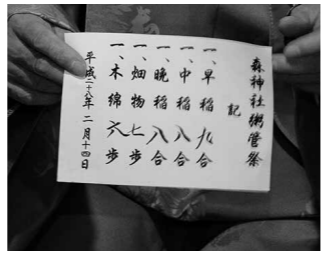 森神社粥管祭
記
一、早稲 九合
一、中稲 八合
一、晩稲 八合
一、畑物 七歩
一、木綿 六歩
平成二十八年 二月十四日